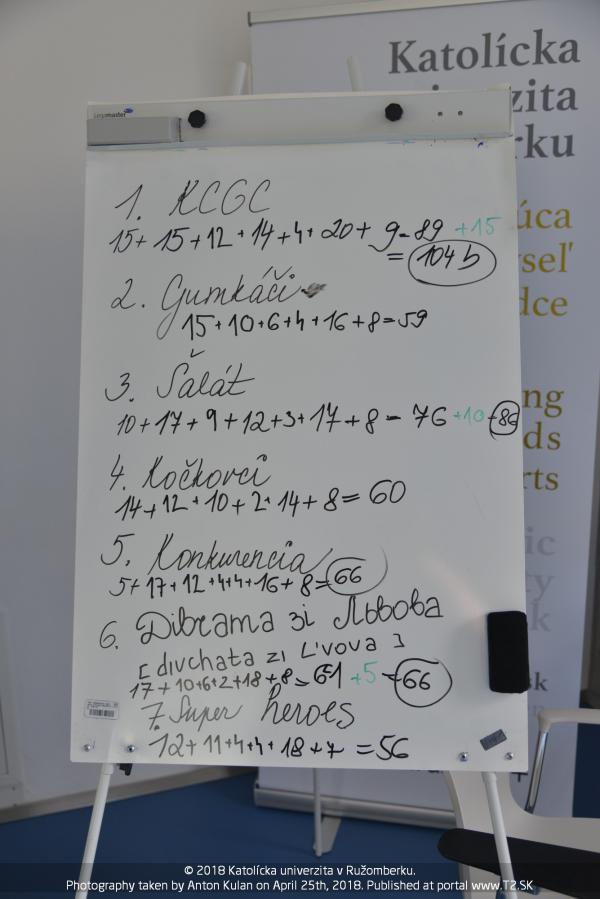 Katolícka
zita
rku
1. KCGC
15+ 15+12+14+4+20+ 9=89 +15
= 104 b
úca
seľ
dce
2. Gumkáči
15+10+6+4+16+8=59
3. Šalát
10+17+9+12+3+17+8= 76 +10 =86
ng
ds
rts
4. Kočkovci
14+12+10+2+14+8=60
5. Konkurencia
5+17+12+4+4+16+8=66
ic
ty
k
6. Дівчата зі Львова
[divchata zi L'vova]
17+10+6+2+18+8=61 +5 =66
sk
7. Super heroes
12+11+4+4+18+7=56
© 2018 Katolícka univerzita v Ružomberku.
Photography taken by Anton Kulan on April 25th, 2018. Published at portal www.T2.SK